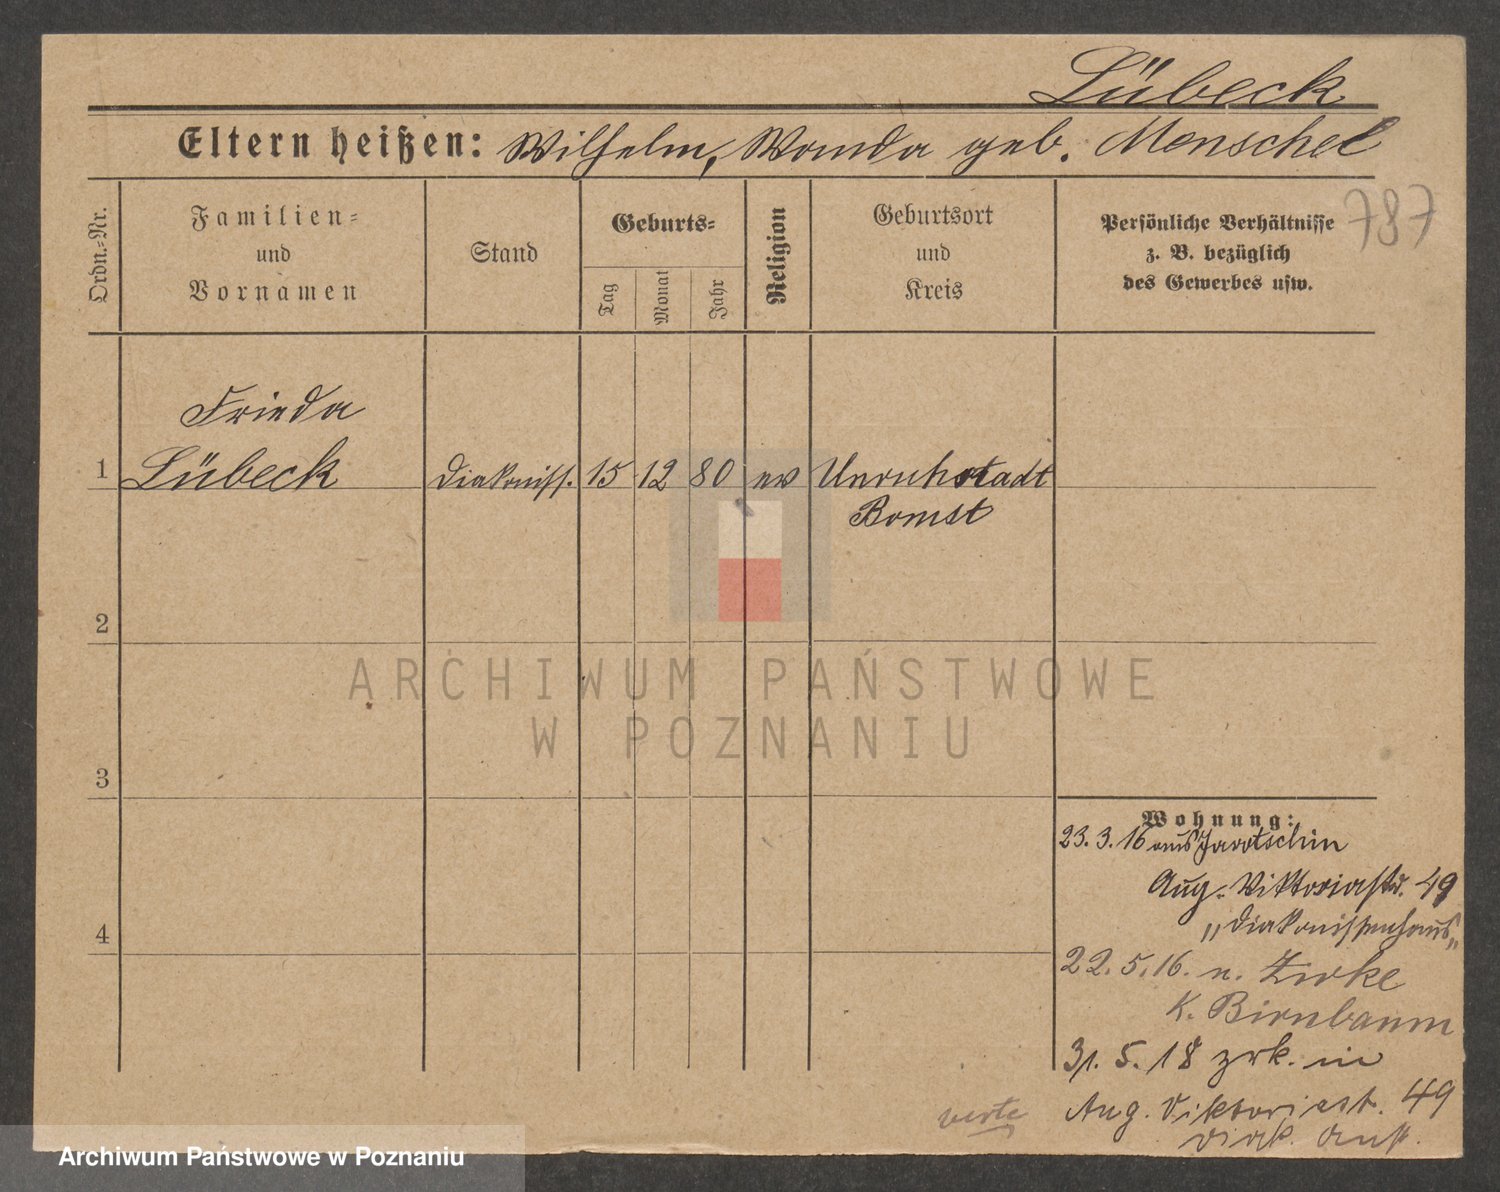 Lübeck
Eltern heißen: Wilhelm, Wanda geb. Menschel
787
Ordn.-Nr.
Familien-
und
Vornamen
Stand
Geburts-
Tag
Monat
Jahr
Religion
Geburtsort
und
Kreis
Persönliche Verhältnisse
z. B. bezüglich
des Gewerbes usw.
Frieda
1 Lübeck Diakoniss. 15 12 80 ev Unruhstadt
Bomst
2
ARCHIWUM PAŃSTWOWE
W POZNANIU
3
Wohnung:
23. 3. 16 aus Jarotschin
Aug. Viktoriastr. 49
"Diakonissenhaus"
4
22. 5. 16. n. Zirke
K. Birnbaum
31. 5. 18 zrk. in
Aug. Viktoriast. 49
Diak. Anst.
verte
Archiwum Państwowe w Poznaniu